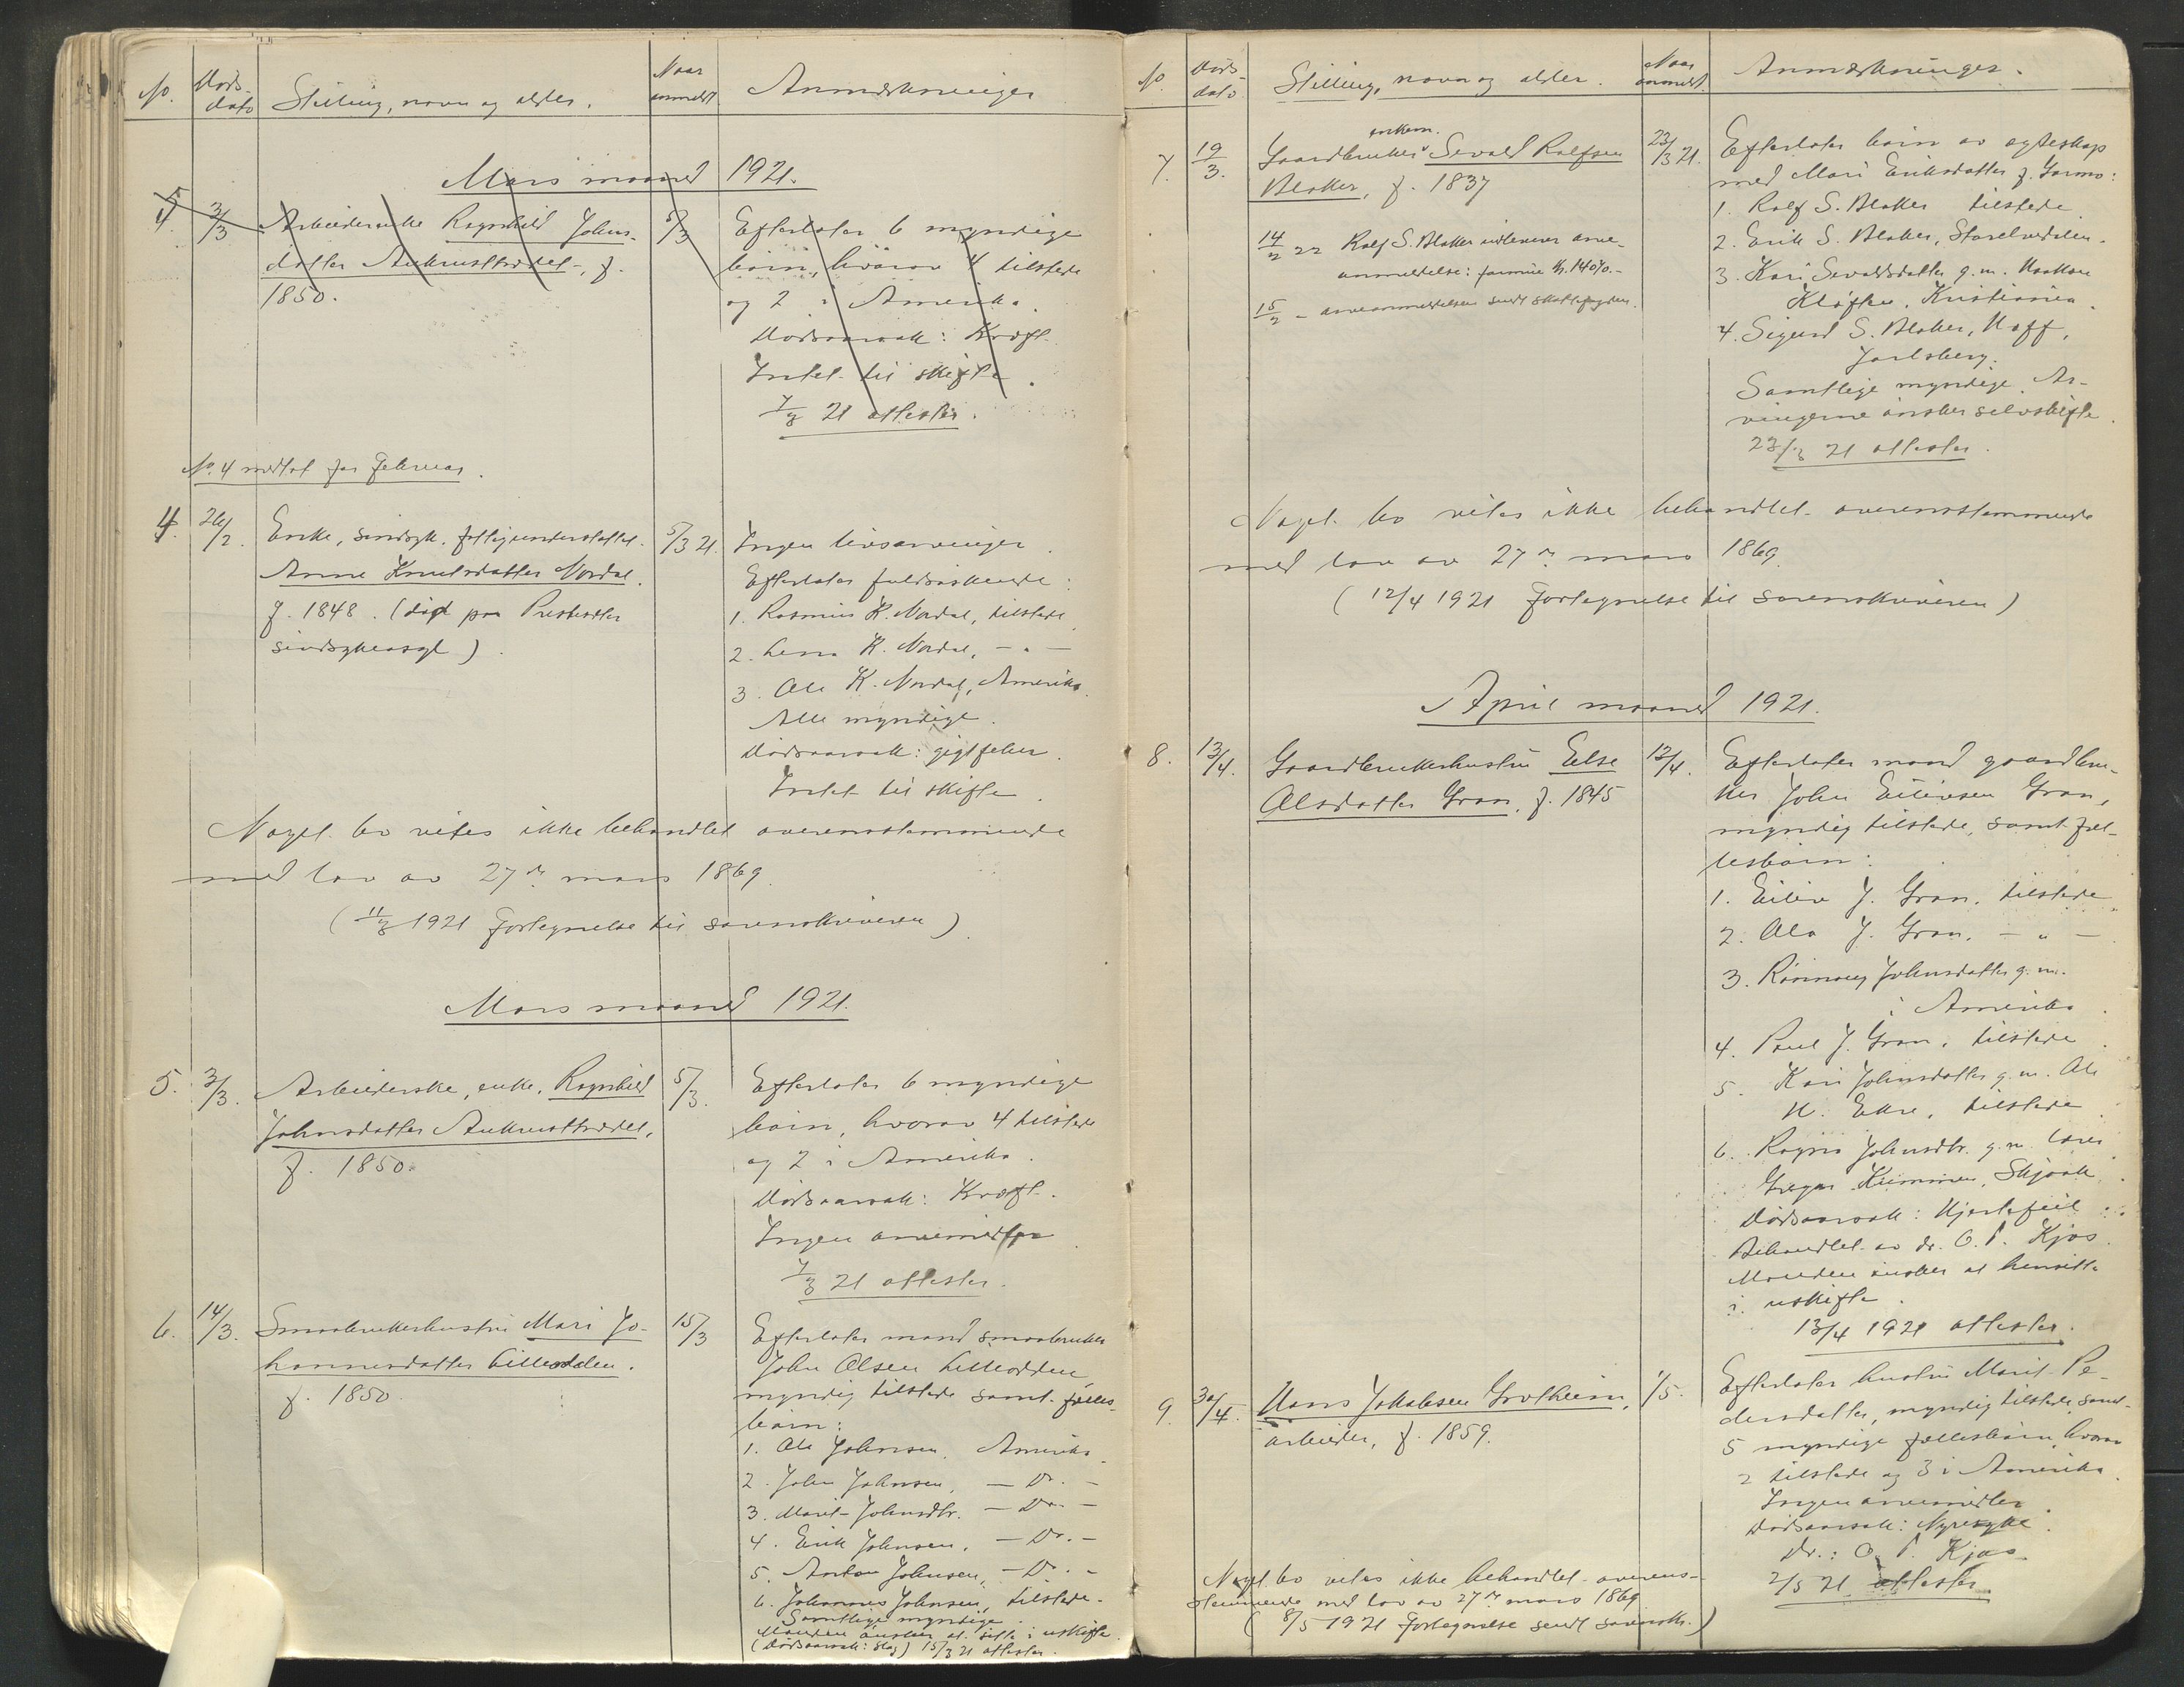 No. Døds- Stilling, navn og alder. Naar Anmerkninger
dato anmeldt
Mars maaned 1921.
4. 3/3 Arbeiderske Ragnhild Johns- 5/3
datter Aukrusttrædet, f.
1850.
Efterlater 6 myndige
børn, hvorav 4 tilstede
og 2 i Amerika.
Dødsaarsak: Kræft.
Intet til skifte.
7/3 21 attester.
No. 4 medtat for Februar.
4. 26/2. Enke, sindsyk, fattigunderstøttet. 5/3 21.
Anne Knutsdatter Nordal.
f. 1848. (død paa Presteseter
sindsykeasyl).
Ingen livsarvinger.
Efterlater fuldsøskende:
1. Rasmus K. Nordal, tilstede
2. Lena K. Nordal, - " -
3. Ole K. Nordal, Amerika.
Alle myndige.
Dødsaarsak: gigtfeber.
Intet til skifte.
Noget bo vites ikke behandlet overensstemmende
med lov av 27de mars 1869.
(11/3 1921 Fortegnelse til sorenskriveren)
Mars maaned 1921.
5. 3/3. Arbeiderske, enke, Ragnhild 5/3.
Johnsdatter Aukrusttrædet,
f. 1850.
Efterlater 6 myndige
børn, hvorav 4 tilstede
og 2 i Amerika.
Dødsaarsak: Kræft.
Ingen arvemidler
7/3 21 attester.
6. 14/3. Smaabrukerhustru Mari Jo- 15/3
hannesdatter Lilleødden.
f. 1850.
Efterlater mand smaabruker
John Olsen Lilleødden,
myndig tilstede samt fælles-
børn:
1. Ole Johnsen, Amerika.
2. John Johnsen, - Do. -
3. Marit Johnsdtr. - Do. -
4. Erik Johnsen, - Do. -
5. Anton Johnsen, - Do. -
6. Johannes Johnsen, tilstede.
Samtlige myndige.
Manden ønsker at sitte i uskifte.
(Dødsaarsak: slag) 15/3 21 attester.
No. Døds- Stilling, navn og alder. Naar Anmerkninger.
dato anmeldt.
enkem.
7. 19/3. Gaardbruker Sevald Rolfsen 23/3 21.
Blaker, f. 1837
14/2 22 Rolf S. Blaker indleverer arve-
anmeldelse: formue Kr. 1400.-
15/2 - arveanmeldelsen sendt skattefogden.
Efterlater børn av egteskap
med Mari Eriksdatter f. Garmo:
1. Rolf S. Blaker tilstede.
2. Erik S. Blaker, Storelvedalen.
3. Kari Sevaldsdatter g.m. Haakon
Kløften, Kristiania.
4. Sigurd S. Blaker, Hoff,
Jarlsberg.
Samtlige myndige. Ar-
vingerne ønsker selvskifte.
23/3 21 attester.
Noget bo vites ikke behandlet overensstemmende
med lov av 27de mars 1869.
(12/4 1921 Fortegnelse til sorenskriveren)
April maaned 1921.
8. 13/4. Gaardbrukerhustru Eelse 13/4.
Olsdatter Gran, f. 1845
Efterlater mand gaardbru-
ker John Eilivsen Gran,
myndig tilstede, samt fæl-
lesbørn:
1. Eiliv J. Gran, tilstede
2. Ola J. Gran, - " -
3. Rønnaug Johnsdatter g.m.
i Amerika.
4. Paul J. Gran, tilstede.
5. Kari Johnsdatter g.m. Ole
H. Ekre, tilstede.
6. Ragna Johnsdtr. g.m. lærer
Gregar Kummen, Skjaak.
Dødsaarsak: Hjertefeil.
Behandlet av dr. O. P. Kjos.
Manden ønsker at hensitte
i uskifte.
13/4 1921 attester.
9. 30/4. Hans Jakobsen Grotheim, 1/5.
arbeider, f. 1859.
Efterlater hustru Marit Pe-
dersdatter, myndig tilstede, samt
5 myndige fællesbørn, hvorav
2 tilstede og 3 i Amerika.
Ingen arvemidler.
Dødsaarsak: Nyresyke.
Dr.: O. P. Kjos
2/5 21 attester.
Noget bo vites ikke behandlet overens-
stemmende med lov av 27de mars 1869
(8/5 1921 Fortegnelse sendt sorenskr.)